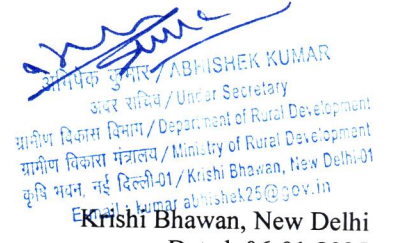 अभिषेक कुमार / ABHISHEK KUMAR
अवर सचिव / Under Secretary
ग्रामीण विकास विभाग / Department of Rural Development
ग्रामीण विकास मंत्रालय / Ministry of Rural Development
कृषि भवन, नई दिल्ली-01 / Krishi Bhawan, New Delhi-01
Email : kumar.abhishek25@gov.in
Krishi Bhawan, New Delhi